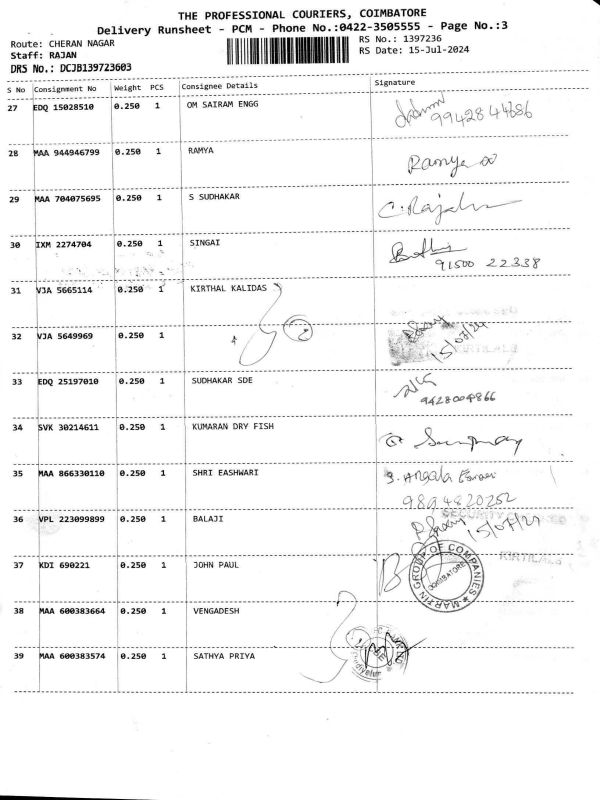 THE PROFESSIONAL COURIERS, COIMBATORE
Delivery Runsheet - PCM - Phone No.:0422-3505555 - Page No.:3
Route: CHERAN NAGAR
RS No.: 1397236
Staff: RAJAN
RS Date: 15-Jul-2024
DRS No.: DCJB139723603
S No Consignment No Weight PCS Consignee Details Signature
27 EDQ 15028510 0.250 1 OM SAIRAM ENGG
9942844686
28 MAA 944946799 0.250 1 RAMYA
Ramya
29 MAA 704075695 0.250 1 S SUDHAKAR
C. Rajah
30 IXM 2274704 0.250 1 SINGAI
91500 22338
31 VJA 5665114 0.250 1 KIRTHAL KALIDAS
32 VJA 5649969 0.250 1
2
15/07/24
33 EDQ 25197010 0.250 1 SUDHAKAR SDE
9428004866
34 SVK 30214611 0.250 1 KUMARAN DRY FISH
35 MAA 866330110 0.250 1 SHRI EASHWARI
S. Angala
9894820252
36 VPL 223099899 0.250 1 BALAJI
SECURITY
15/07/24
37 KDI 690221 0.250 1 JOHN PAUL
MARTIN GROUP OF COMPANIES
COIMBATORE
38 MAA 600383664 0.250 1 VENGADESH
39 MAA 600383574 0.250 1 SATHYA PRIYA